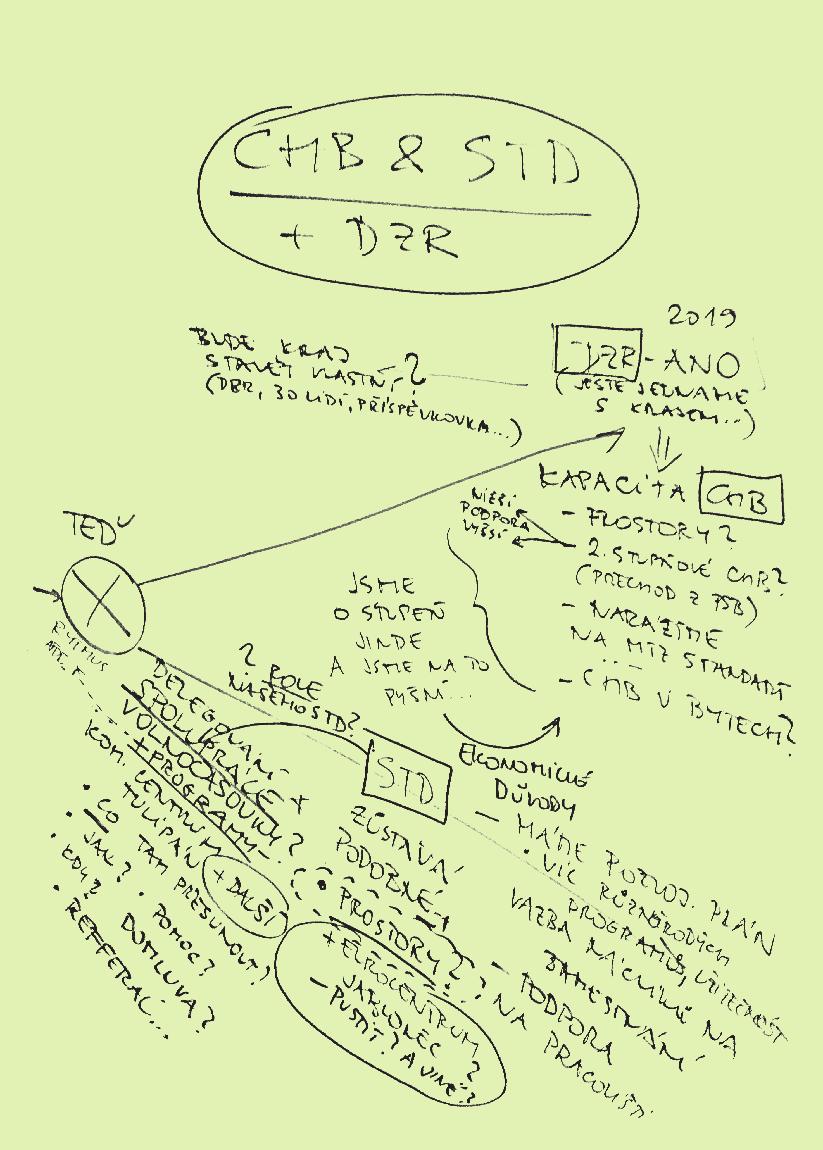 CHB & STD
+ DZR
2019
DZR - ANO
(JEŠTĚ JEDNÁME
S KRAJEM...)
BUDE KRAJ
STAVĚT VLASTNÍ?
(DBR, 30 LIDÍ, PŘÍSPĚVKOVKA...)
KAPACITA CHB
- PROSTORY?
- 2. STUPŇOVÉ CHB?
(PŘECHOD Z PSB)
NIŽŠÍ
PODPORA
VYŠŠÍ
- NARÁŽÍME
NA MTZ STANDART
...
- CHB V BYTECH?
TEĎ
RYTMUS
JSME
O STUPEŇ
JINDE
A JSME NA TO
PYŠNÍ...
? ROLE
NAŠEHO STD?
STD
ZŮSTÁVÁ
PODOBNÉ +
• PROSTORY??
+ EUROCENTRUM
JABLONEC?
- PUSTIT? A JINÉ?
EKONOMICKÉ
DŮVODY
- MÁME ROZVOJ. PLÁN
• VÍC RŮZNORODÝCH
PROGRAMŮ, UŽITEČNOST
VAZBA NÁCVIKŮ NA
ZAMĚSTNÁNÍ
- PODPORA
NA PRACOVIŠTI
DELEGOVÁNÍ
SPOLUPRÁCE +
VOLNOČASOVKY?
+ PROGRAMY -
KOM. CENTRUM
TULIPÁN
+ DALŠÍ
• CO TAM PŘESUNOUT?
• JAK? • POMOC?
• KDY? DOMLUVA?
• REFFERAL...